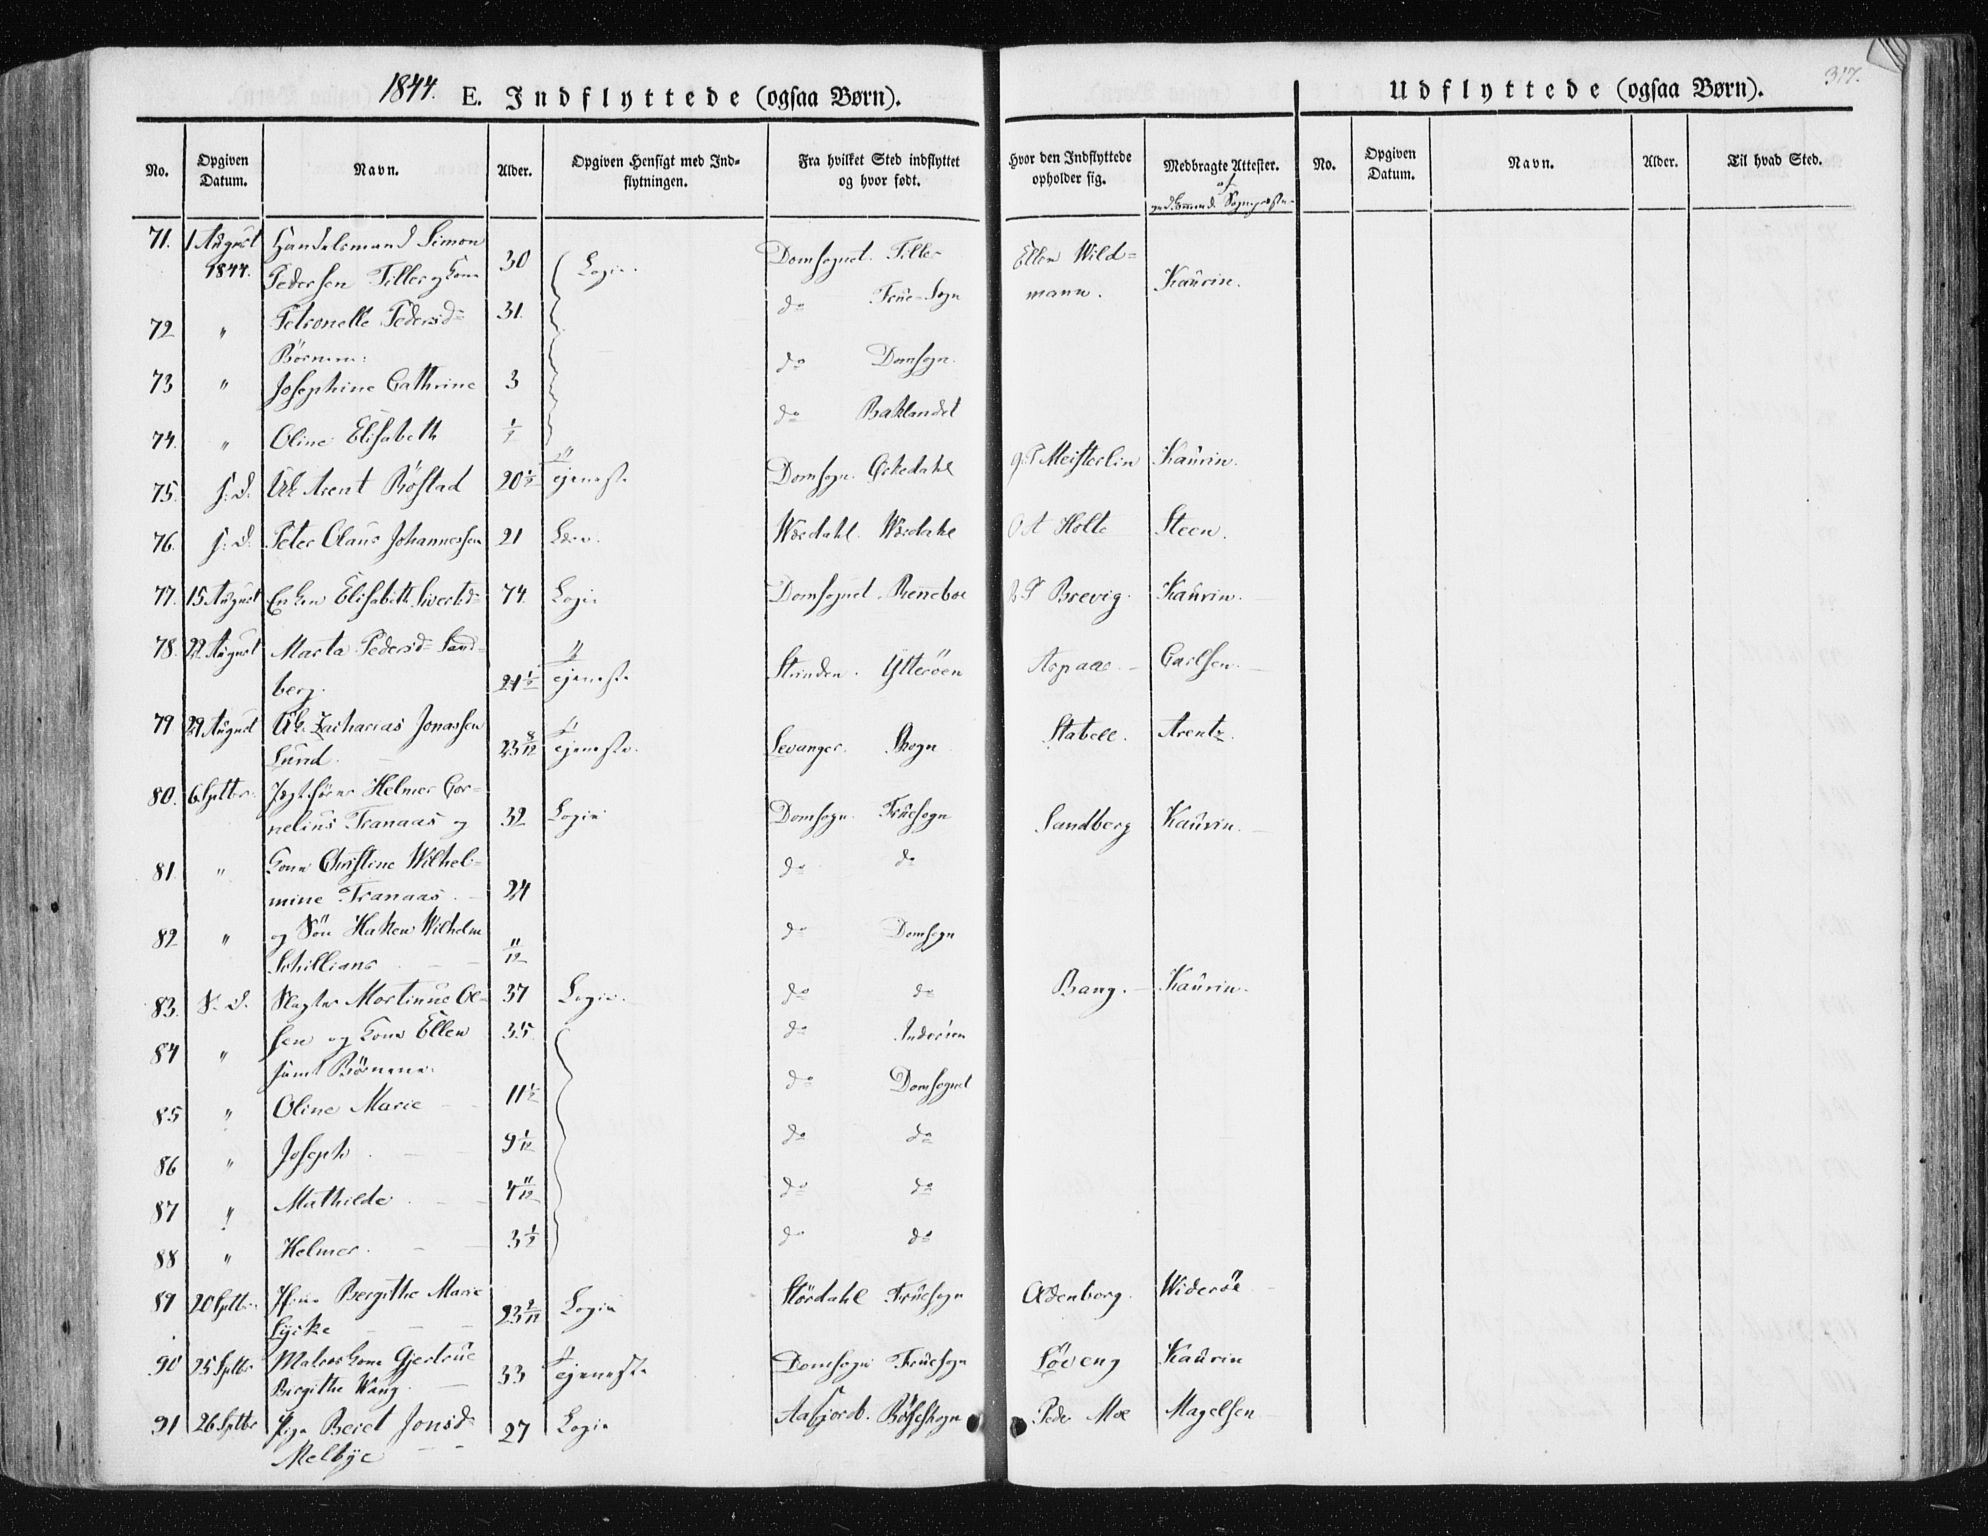 1844. E. Indflyttede (ogsaa Børn).
Udflyttede (ogsaa Børn). 317.
No. Opgiven Datum. Navn. Alder. Opgiven Hensigt med Indflytningen. Fra hvilket Sted indflyttet og hvor født. Hvor den Indflyttede opholder sig. Medbragte Attester. No. Opgiven Datum. Navn. Alder. Til hvad Sted.
71. 1 August 1844. Handelsmand Simon Pedersen Tiller og Kone 30 Logie. Domsognet. Tiller Ellen Wildmann. Kaurin.
72 " Petronelle Pedersd= 31. do Frue-Sogn
Børnene:
73 " Josephine Cathrine 3 do Domsogn.
74. " Oline Elisabeth do Baklandet
75. s. D. Arent Röstad 20 1/2 Tjeneste Domsogn. Orkedahl Meisterlin Kaurin.
76. s. D. Peter Claus Johannessen 21 Lære. Værdahl. Værdahl Holte Steen.
77. 15 August Enken Elisabeth Sivertsd= 74. Logie Domsognet Renneboe Brevig. Kaurin.
78. 22 August Marta Pedersd= Sandberg. 21 1/2 Tjeneste Strinden. Ytterøen Aspaas Carlsen.
79 29 August Zacharias Jonassen Lund. 23 8/12 Tjeneste. Levanger. Skogn Stabell. Arentz.
80. 6 Septbr. Helmer Cornelius Tranaas og 32 Logie Domsogn. Fruesogn Sandberg Kaurin.
81. " Kone Christine Wilhelmine Tranaas. 24 do do
82 " og Søn Haken Wilhelm Schillians 11/12 do Domsogn
83. S. D. Slagter Mortinus Ol- 37 Logie. do do Bang. Kaurin.
84 " sen og Kone Ellen 35 do Inderøen
samt Børnene:
85 " Oline Marie 11 1/2 do Domsognet
86 " Joseph 9 1/12 do do
87 " Mathilde do do
88 " Helmer. 3 1/2 do do
89 20 Septbr. Bergithe Marie Lycke Logie Størdahl Fruesogn Oldenborg. Widerøe
90 25 Septbr Matros Kone Gjertrue Bergithe Wang. 33 Tjeneste Domsogn Fruesogn Løveng Kaurin
91 26 Septbr Pige Beret Jonsd= Melbye 27 Logie Aafjord. Peder Moe Magelsen